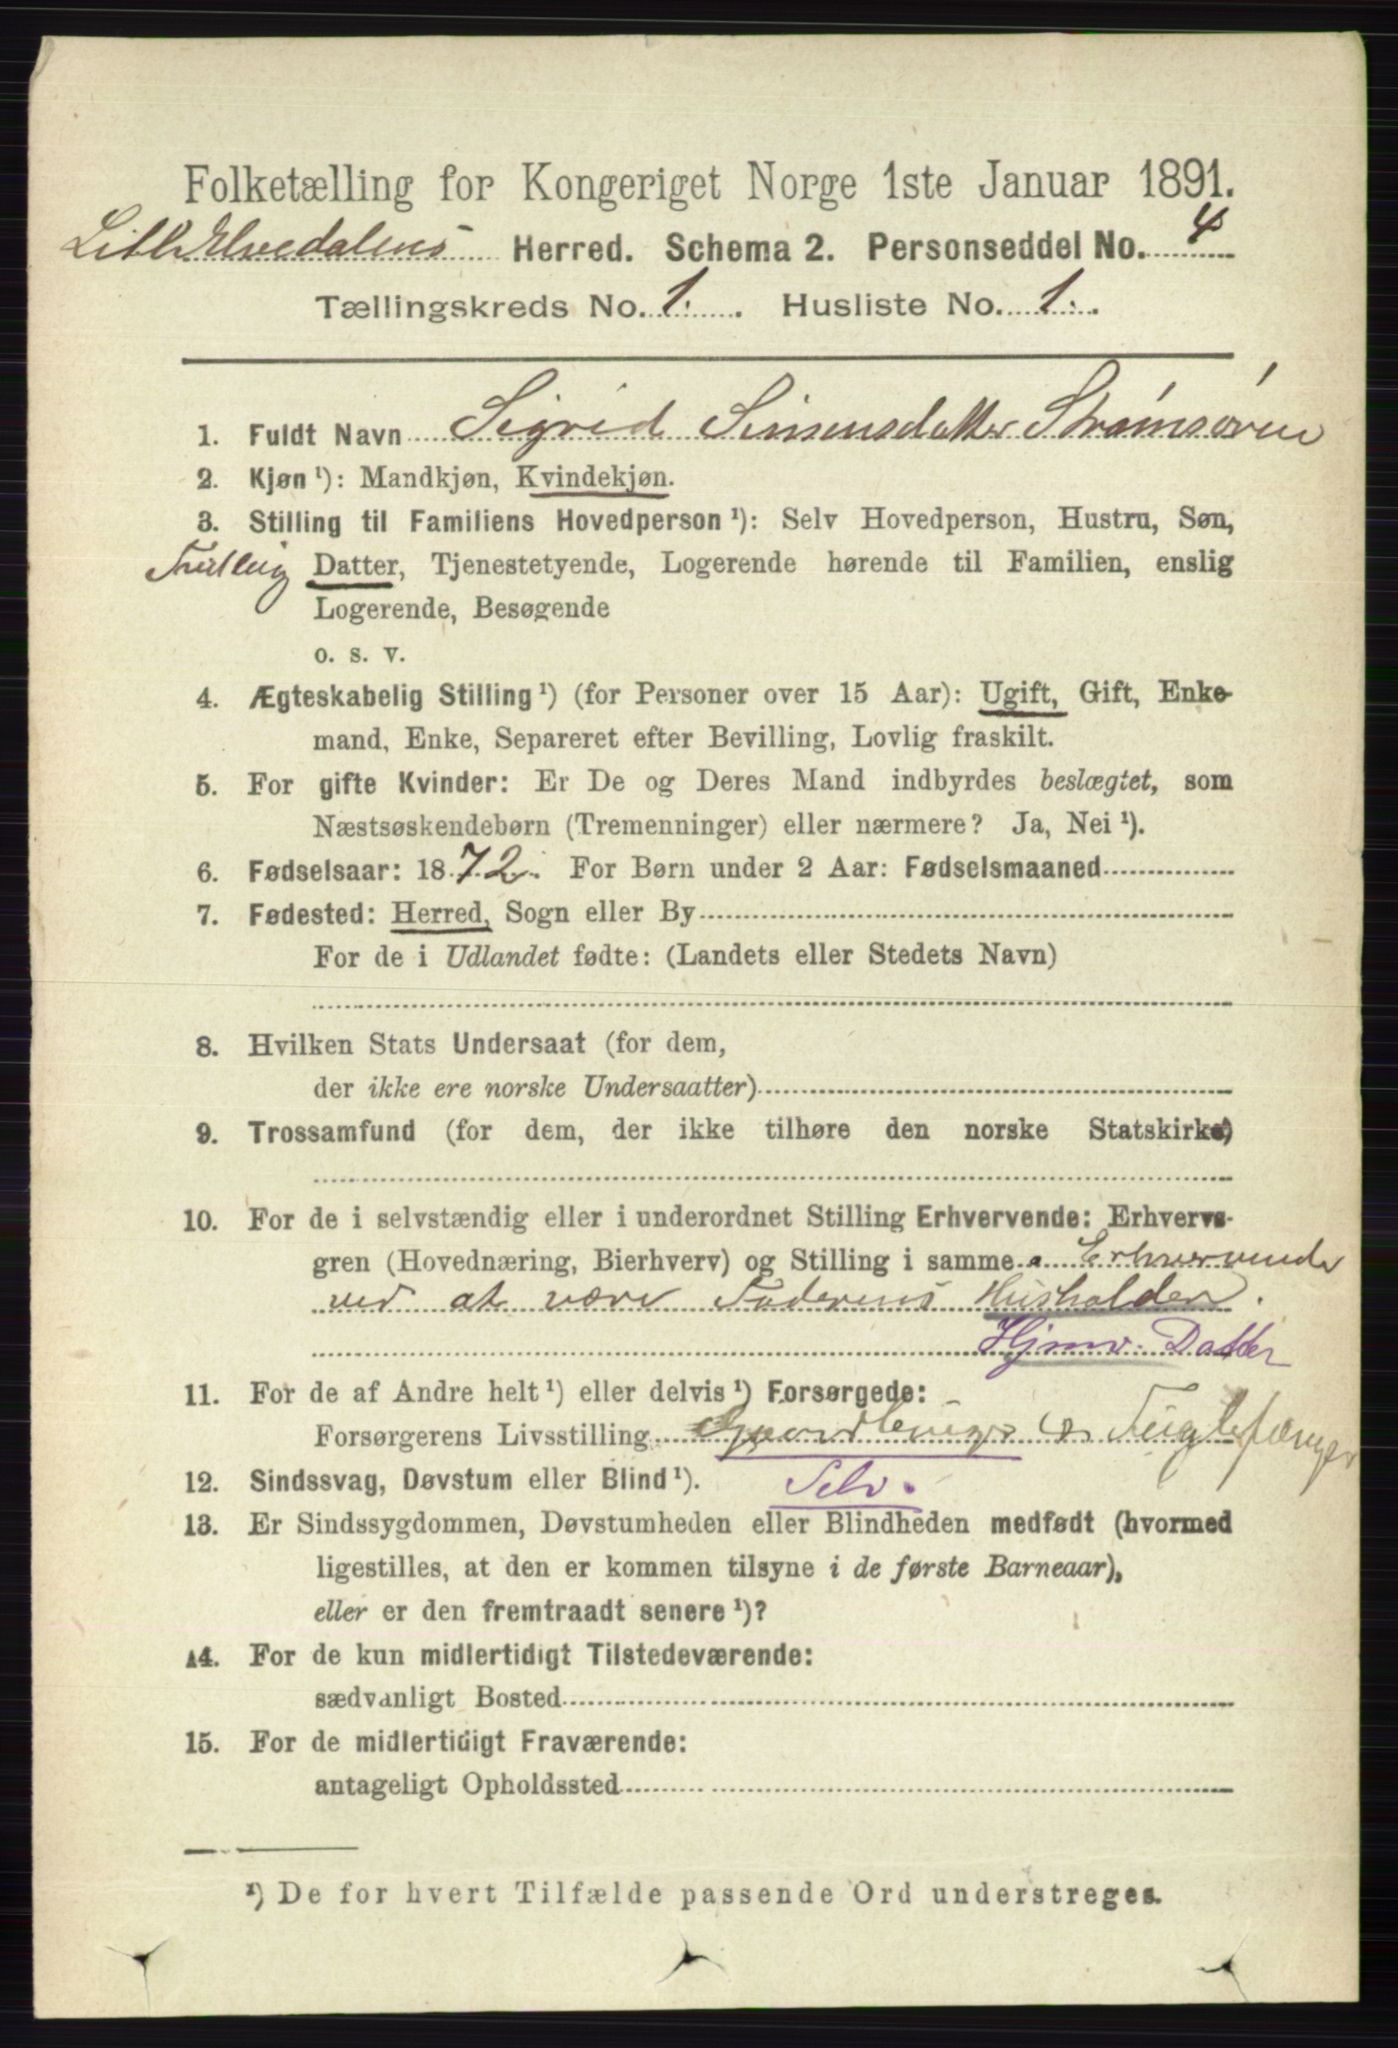 Folketælling for Kongeriget Norge 1ste Januar 1891.
Lille Elvedalens Herred. Schema 2. Personseddel No. 4
Tællingskreds No. 1. Husliste No. 1.
1. Fuldt Navn Sigrid Simensdatter Strømsøren
2. Kjøn ¹): Mandkjøn, Kvindekjøn.
3. Stilling til Familiens Hovedperson ¹): Selv Hovedperson, Hustru, Søn,
Datter, Tjenestetyende, Logerende hørende til Familien, enslig
Logerende, Besøgende
o. s. v.
4. Ægteskabelig Stilling ¹) (for Personer over 15 Aar): Ugift, Gift, Enke-
mand, Enke, Separeret efter Bevilling, Lovlig fraskilt.
5. For gifte Kvinder: Er De og Deres Mand indbyrdes beslægtet, som
Næstsøskendebørn (Tremenninger) eller nærmere? Ja, Nei ¹).
6. Fødselsaar: 1872. For Børn under 2 Aar: Fødselsmaaned
7. Fødested: Herred, Sogn eller By
For de i Udlandet fødte: (Landets eller Stedets Navn)
8. Hvilken Stats Undersaat (for dem,
der ikke ere norske Undersaatter)
9. Trossamfund (for dem, der ikke tilhøre den norske Statskirke)
10. For de i selvstændig eller i underordnet Stilling Erhvervende: Erhvervs-
gren (Hovednæring, Bierhverv) og Stilling i samme. Erhvervende
ved at være Faderens Husholder.
Hjmv. Datter
11. For de af Andre helt ¹) eller delvis ¹) Forsørgede:
Forsørgerens Livsstilling Gaardbruger og Fuglefænger
12. Sindssvag, Døvstum eller Blind ¹). Selv.
13. Er Sindssygdommen, Døvstumheden eller Blindheden medfødt (hvormed
ligestilles, at den er kommen tilsyne i de første Barneaar),
eller er den fremtraadt senere ¹)?
14. For de kun midlertidigt Tilstedeværende:
sædvanligt Bosted
15. For de midlertidigt Fraværende:
antageligt Opholdssted
¹) De for hvert Tilfælde passende Ord understreges.